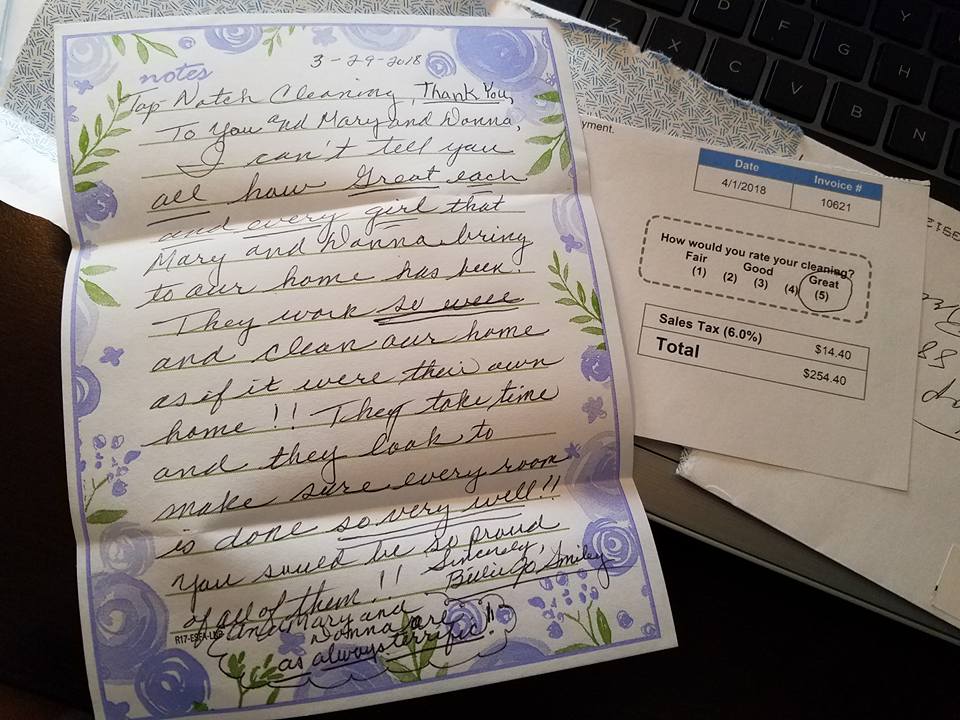 notes
3-29-2018
Top Notch Cleaning, Thank You,
To You and Mary and Donna,
I can't tell you
all how Great each
and every girl that
Mary and Donna bring
to our home has been.
They work so well
and clean our home
as if it were their own
home!! They take time
and they look to
make sure every room
is done so very well!!
You would be so proud
of all of them!!
Sincerely,
Billie Jo Smiley
and Mary and
Donna are
as always terrific!!!
yment.
Date Invoice #
4/1/2018 10621
How would you rate your cleaning?
Fair Good Great
(1) (2) (3) (4) (5)
Sales Tax (6.0%) $14.40
Total $254.40
Z X C V B N D F G H Y